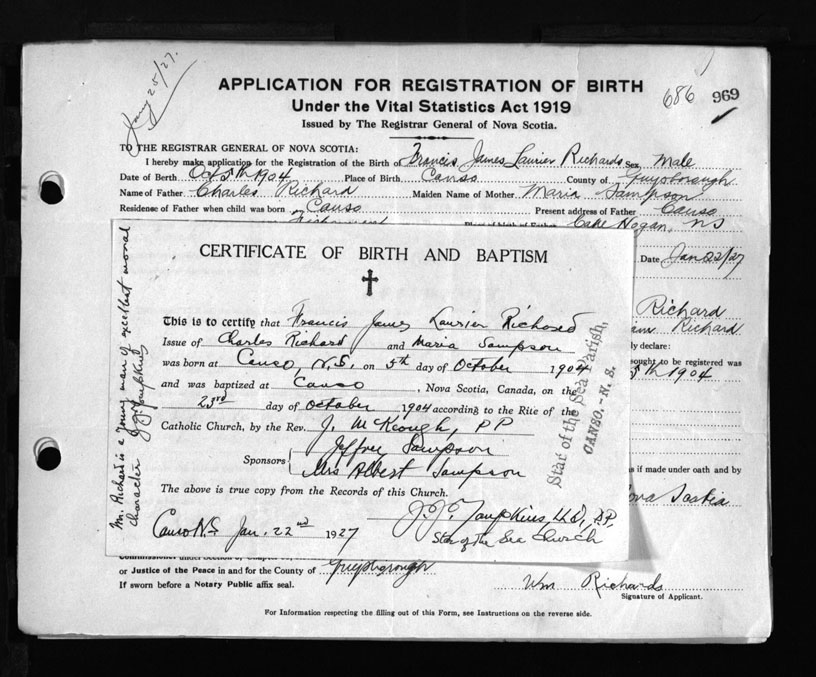 Jany 25/27.
APPLICATION FOR REGISTRATION OF BIRTH
Under the Vital Statistics Act 1919
Issued by The Registrar General of Nova Scotia.
686
969
TO THE REGISTRAR GENERAL OF NOVA SCOTIA:
I hereby make application for the Registration of the Birth of Francis James Laurier Richards Sex, Male
Date of Birth Oct 5th 1904 Place of Birth Canso County of Guysborough
Name of Father Charles Richard Maiden Name of Mother Maria Sampson
Residence of Father when child was born Canso Present address of Father Canso
Place of birth of Father, Cape Hogan, NS
Date Jan 22/27
Richard
Richard
ly declare:
sought to be registered was
5th 1904
s if made under oath and by
Nova Scotia
CERTIFICATE OF BIRTH AND BAPTISM
This is to certify that Francis James Laurier Richard
Issue of Charles Richard and Maria Sampson
was born at Canso, N.S. on 5th day of October 1904
and was baptized at Canso, Nova Scotia, Canada, on the
23rd day of October 1904 according to the Rite of the
Catholic Church, by the Rev. J. McKeough, P P
Sponsors Jeffrey Sampson
Mrs Albert Sampson
The above is true copy from the Records of this Church.
Canso N.S. Jan. 22nd 1927
J.J. Tompkins, LLD, P.P.
Star of the Sea Church
Star of the Sea Parish,
CANSO.-N. S.
Mr. Richard is a young man of excellent moral
character J.J. Tompkins
or Justice of the Peace in and for the County of Guysborough
If sworn before a Notary Public affix seal.
Wm Richards
Signature of Applicant.
For Information respecting the filling out of this Form, see Instructions on the reverse side.